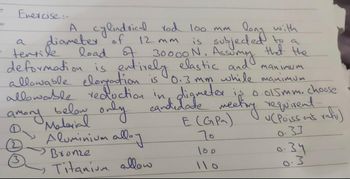 Exercise:-
A cylindrical rod 100 mm long with
a diameter of 12 mm is subjected to a
tensile load of 30000 N. Assuming that the
deformation is entirely elastic and maximum
allowable elongation is 0.3 mm while maximum
allowable reduction in diameter is 0.015mm. choose
among below only candidate meeting requirement.
Material E (GPa) υ (Poissons ratio)
① Aluminium alloy 70 0.33
② Bronze 100 0.34
③ Titanium allow 110 0.3